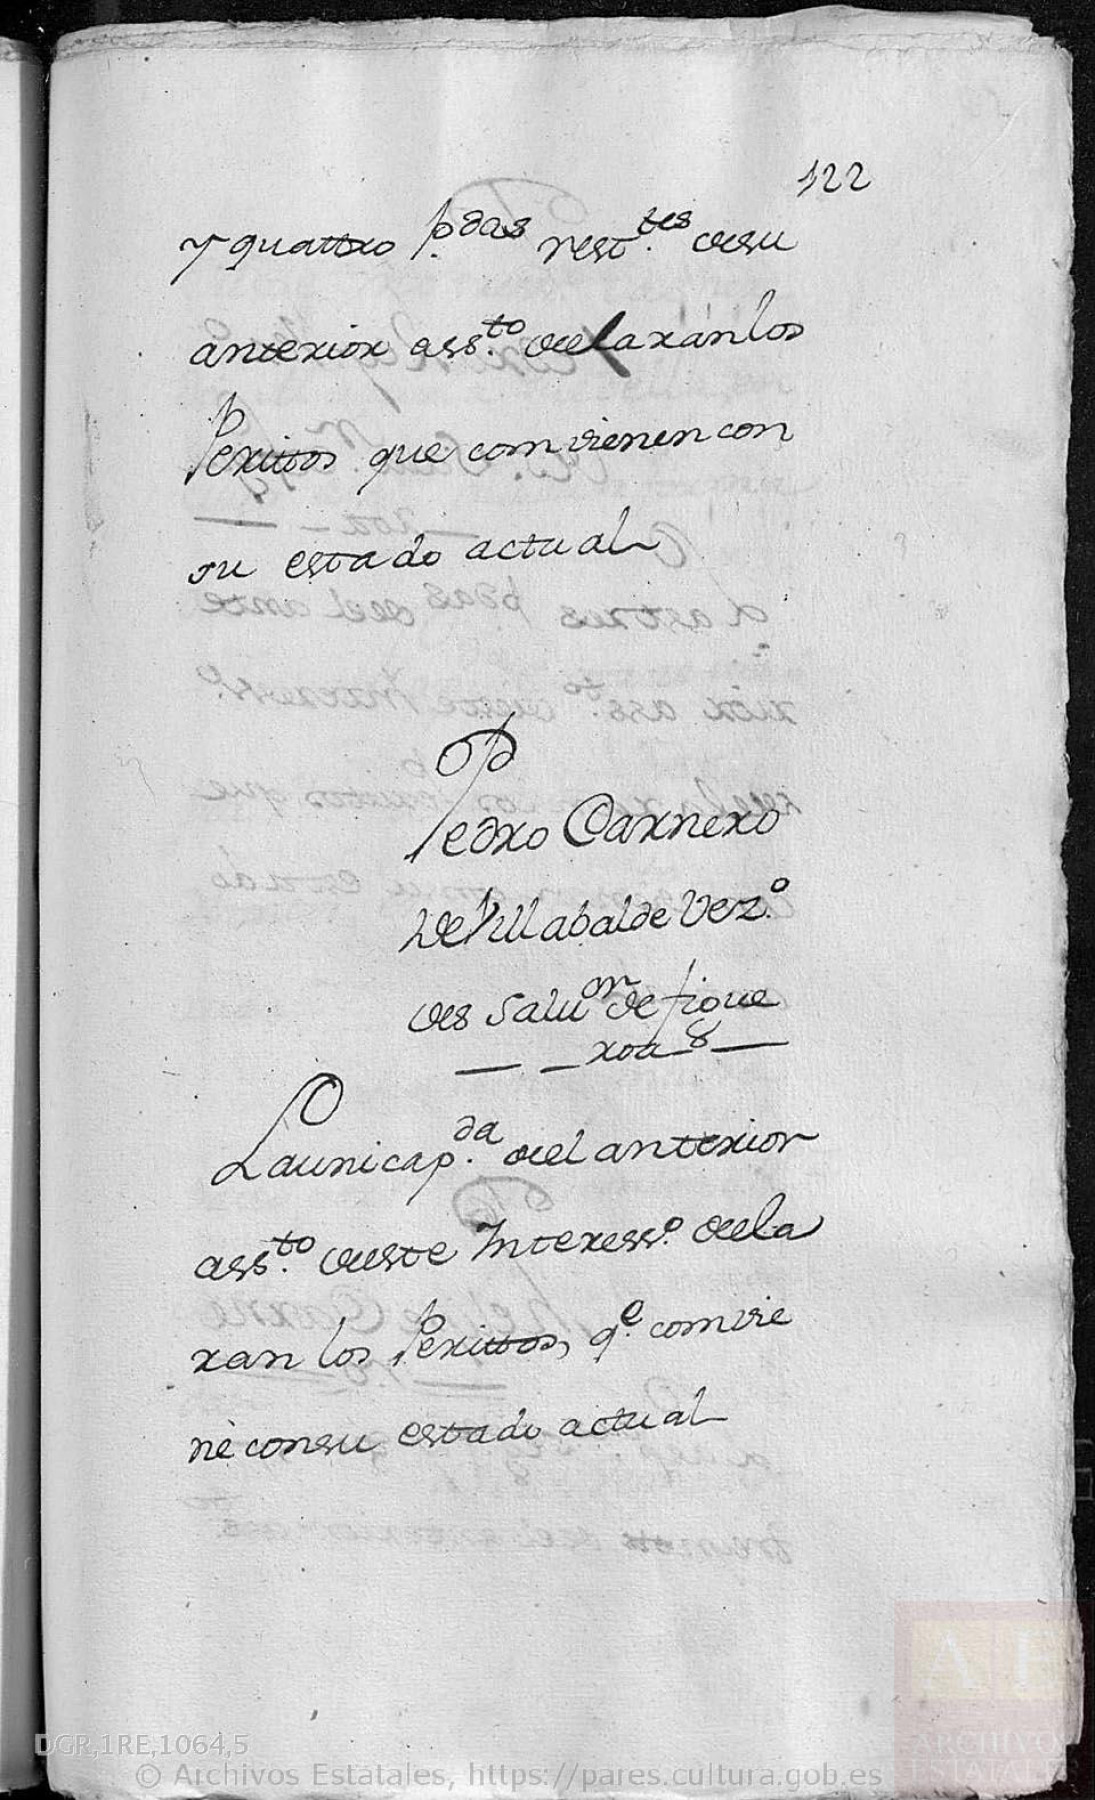 122
y quattro p.das rest.tes desu
anterior ass.to declaran los
Perittos que comvienen con
su estado actual
Pedro Carnero
de Villabalde Vez.o
des Salu.or de figue
roa 8
La unica p.da del anterior
ass.to deeste Interess.o decla
ran los Perittos, q.e comvie
ne consu estado actual
DGR,1RE,1064,5
© Archivos Estatales, https://pares.cultura.gob.es
AE
ARCHIVOS
ESTATALES